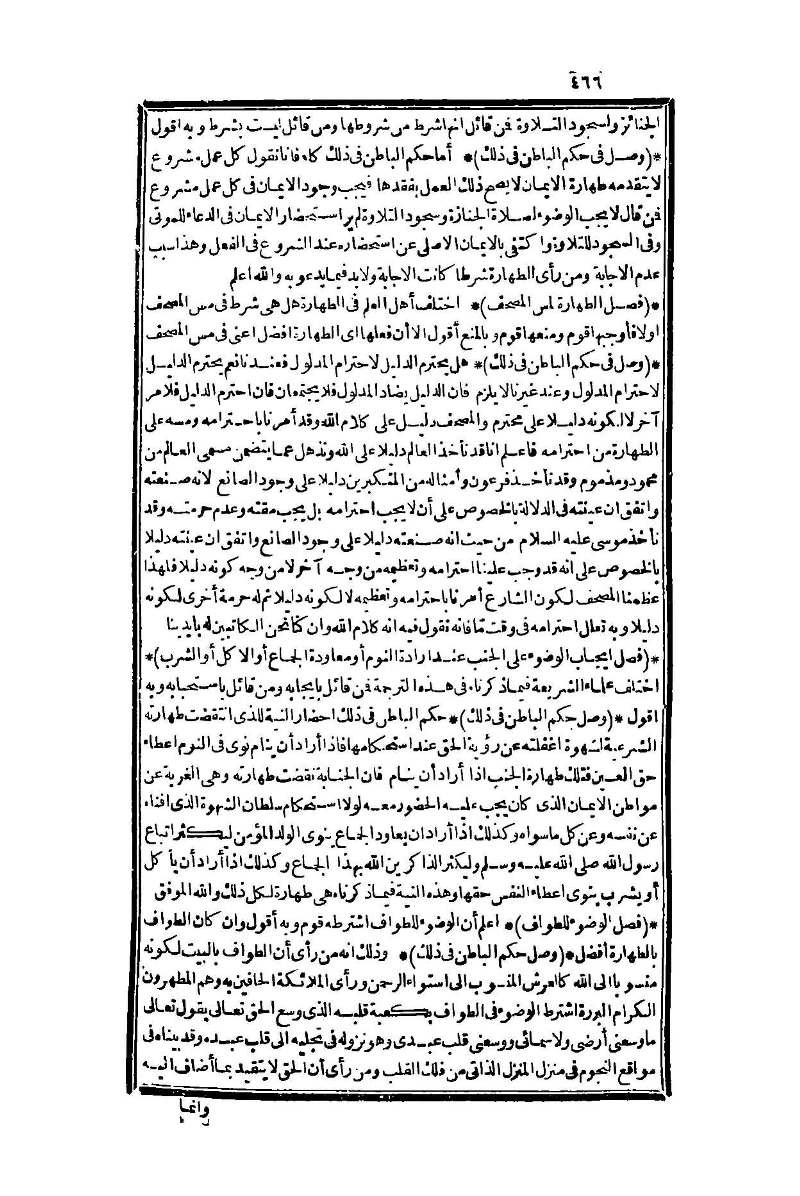 ٤٦٦
الجنائز ولسجود التلاوة فمن قائل انها شرط من شروطها ومن قائل ليست بشرط وبه اقول
*(وصل في حكم الباطن في ذلك)* أما حكم الباطن في ذلك كله فانا نقول كل عمل مشروع
لا يتقدمه طهارة الايمان لا يصح ذلك العمل بفقدها فيجب وجود الايمان في كل عمل مشروع
فمن قال لا يجب الوضوء لصلاة الجنازة وسجود التلاوة لم ير استحضار الايمان في الدعاء للموتى
وفي السجود للتلاوة واكتفى بالايمان الاصلى عن استحضاره عند الشروع في الفعل وهذا سبب
عدم الاجابة ومن رأى الطهارة شرطا كانت الاجابة ولا بد فيما يدعو به والله اعلم
*(فصل الطهارة لمس المصحف)* اختلف أهل العلم في الطهارة هل هى شرط في مس المصحف
اولا فأوجبها قوم ومنعها قوم وبالمنع أقول الا أن فعلها اى الطهارة افضل اعنى في مس المصحف
*(وصل في حكم الباطن في ذلك)* هل يحترم الدليل لاحترام المدلول فعندنا نعم يحترم الدليل
لاحترام المدلول وعند غيرنا لا يلزم فان الدليل يضاد المدلول فلا يجتمعان فان احترم الدليل فلامر
آخر لا لكونه دليلا على محترم والمصحف دليل على كلام الله وقد أمرنا باحترامه ومسه على
الطهارة من احترامه فاعلم انا قد نأخذ العالم دليلا على الله ونذهل عما يتضمن مسمى العالم من
محمود ومذموم وقد نأخذ فرعون وأمثاله من المتكبرين دليلا على وجود الصانع لانه صنعته
واتفق ان عينته في الدلالة بالخصوص على أن لا يجب احترامه بل يجب مقته وعدم حرمته وقد
نأخذ موسى عليه السلام من حيث انه صنعته دليلا على وجود الصانع واتفق ان عينته دليلا
بالخصوص على انه قد وجب علينا احترامه وتعظيمه من وجه آخر لا من وجه كونه دليلا فلهذا
عظمنا المصحف لكون الشارع أمرنا باحترامه وتعظيمه لا لكونه دليلا ثم له حرمة أخرى لكونه
دليلا وبه نعلل احترامه في وقت ما فانه نقول فيه انه كلام الله وان كنا نحن الكاتبين له بايدينا
*(فصل ايجاب الوضوء على الجنب عند ارادة النوم أو معاودة الجماع أو الاكل أو الشرب)*
اختلف علماء الشريعة فيما ذكرناه في هذه الترجمة فمن قائل بايجابه ومن قائل باستحبابه وبه
اقول *(وصل حكم الباطن في ذلك)* حكم الباطن في ذلك احضار النية للذى انتقضت طهارته
الشرعية لشهوة اغفلته عن رؤية الحق عند استحكامها فاذا أراد أن ينام نوى في النوم اعطاء
حق العين فتلك طهارة الجنب اذا أراد أن ينام فان الجنابة نقضت طهارته وهى الغربة عن
مواطن الايمان الذى كان يجب عليه الحضور معه لولا استحكام سلطان الشهوة الذى افناه
عن نفسه وعن كل ما سواه وكذلك اذا أراد ان يعاود الجماع ينوى الولد المؤمن ليكثر اتباع
رسول الله صلى الله عليه وسلم وليكثر الذاكرين الله بهذا الجماع وكذلك اذا أراد أن يأكل
أو يشرب ينوى اعطاء النفس حقها وهذه النية فيما ذكرناه هى طهارة لكل ذلك والله الموفق
*(فصل الوضوء للطواف)* اعلم أن الوضوء للطواف اشترطه قوم وبه أقول وان كان الطواف
بالطهارة أفضل *(وصل حكم الباطن في ذلك)* وذلك انه من رأى أن الطواف بالبيت لكونه
منسوبا الى الله كالعرش المنسوب الى استواء الرحمن ورأى الملائكة الحافين به وهم المطهرون
الكرام البررة اشترط الوضوء في الطواف بكعبة قلبه الذى وسع الحق تعالى يقول تعالى
ما وسعنى أرضى ولا سمائى ووسعنى قلب عبدى وهو نزوله في تجليه الى قلب عبده وقد بيناه في
مواقع النجوم في منزل المنزل الذاتى من فلك القلب ومن رأى أن الحق لا يتقيد بما أضاف اليه
وانما